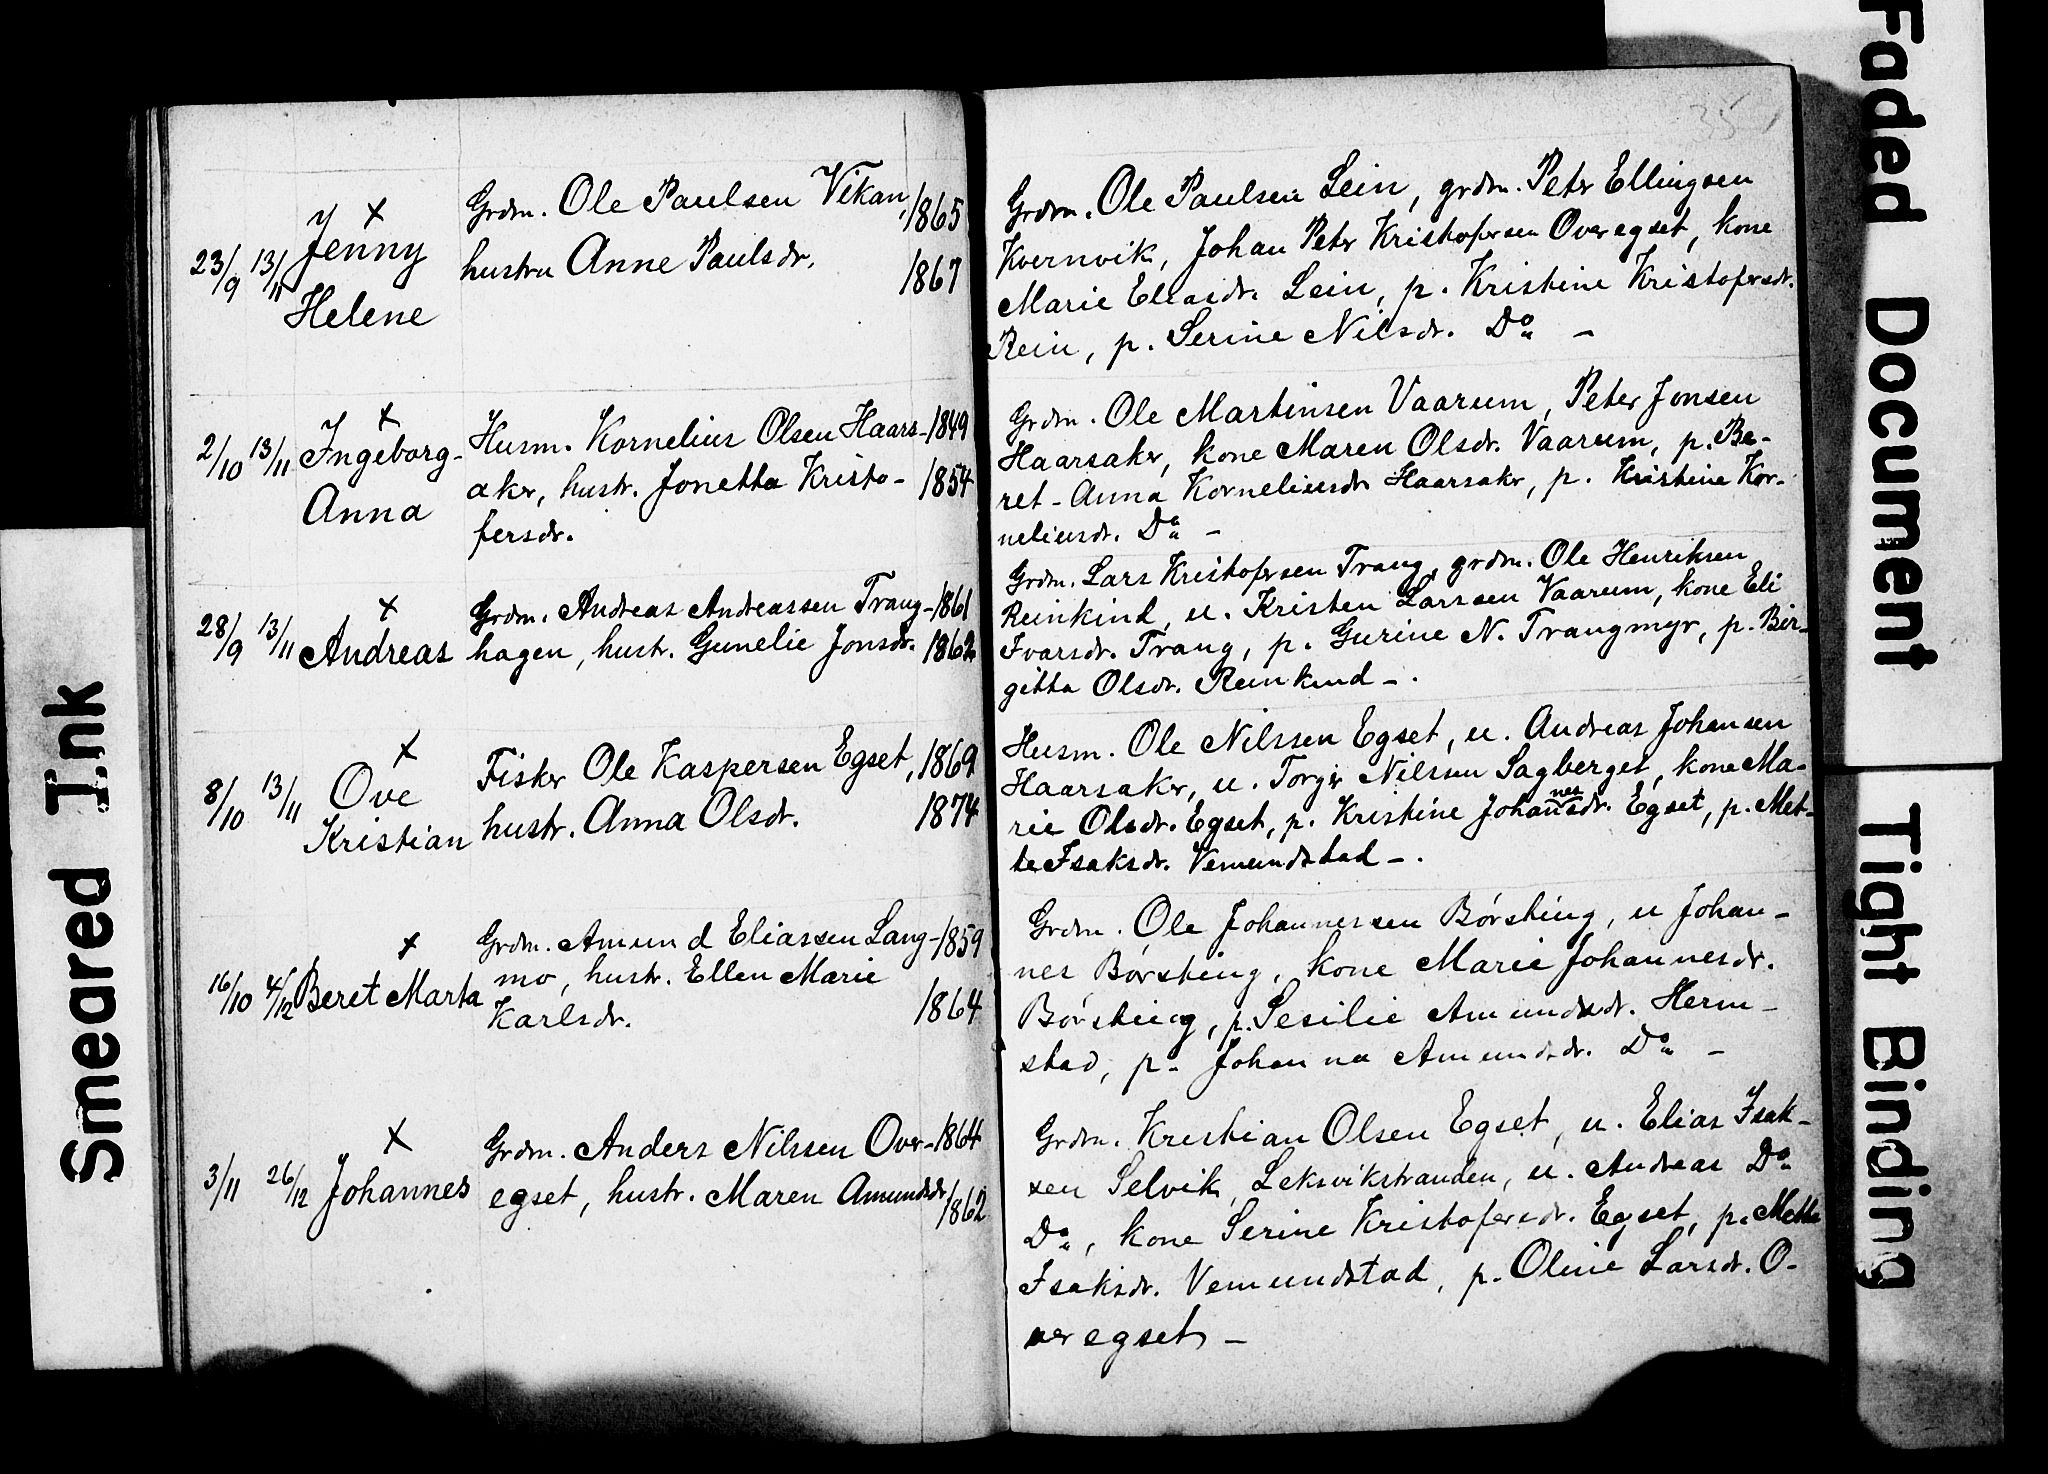 35
23/9 13/11 Jenny
Helene
Grdm. Ole Paulsen Vikan, 1865
hustru Anne Paulsdr. 1867
Grdm. Ole Paulsen Lein, grdm. Peter Ellingsen
Kvernvik, Johan Peter Kristofersen Overegset, kone
Marie Eliasdr. Lein, p. Kristine Kristofersdr.
Rein, p. Serine Nilsdr. Do –
2/10 13/11 Ingeborg-
Anna
Husm. Kornelius Olsen Haars- 1849
aker, hustr. Jonetta Kristo- 1854
fersdr.
Grdm. Ole Martinsen Vaarum, Peter Jonsen
Haarsaker, kone Maren Olsdr. Vaarum, p. Be-
ret-Anna Korneliusdr Haarsaker, p. Kristine Kor-
neliusdr. Do –
28/9 13/11 Andreas
Grdm. Andreas Andreassen Trang- 1861
hagen, hustr. Gunelie Jonsdr. 1862
Grdm. Lars Kristofersen Trang, grdm. Ole Henriksen
Reinkind, u. Kristen Larssen Vaarum, kone Eli
Ivarsdr. Trang, p. Gurine N. Trangmyr, p. Bir-
gitta Olsdr. Reinkind –.
8/10 13/11 Ove
Kristian
Fisker Ole Kaspersen Egset, 1869
hustr. Anna Olsdr. 1874
Husm. Ole Nilssen Egset, u. Andreas Johansen
Haarsaker, u. Torger Nilssen Sagberget, kone Ma-
rie Olsdr. Egset, p. Kristine Johannesdr. Egset, p. Met-
te Isaksdr. Vemundstad –.
16/10 4/12 Beret Marta
Grdm. Amund Eliassen Lang- 1859
mo, hustr. Ellen Marie
Karlsdr. 1864
Grdm. Ole Johannessen Børsting, u Johan-
nes Børsting, kone Marie Johannesdr.
Børsting, p. Sesilie Amundsdr. Herm-
stad, p. Johanna Amundsdr. Do –
3/11 26/12 Johannes
Grdm. Anders Nilssen Over- 1864
egset, hustr. Maren Amundsdr. 1862
Grdm. Kristian Olsen Egset, u. Elias Isak-
sen Selvik, Leksvikstranden, u. Andreas Do
Do, kone Serine Kristofersdr. Egset, p. Mette
Isaksdr. Vemundstad, p. Oline Larsdr. O-
veregset –
Smeared Ink
Faded Document
Tight Binding